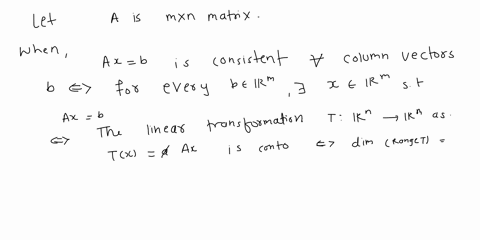 Let A is mxn matrix.
When,
Ax = b is consistent ∀ column vectors
b <=> for every b ∈ ℝᵐ, ∃ x ∈ ℝᵐ s.t
Ax = b
<=> The linear transformation T: ℝⁿ → ℝⁿ as.
T(x) = Ax is conto <=> dim (Range T) =